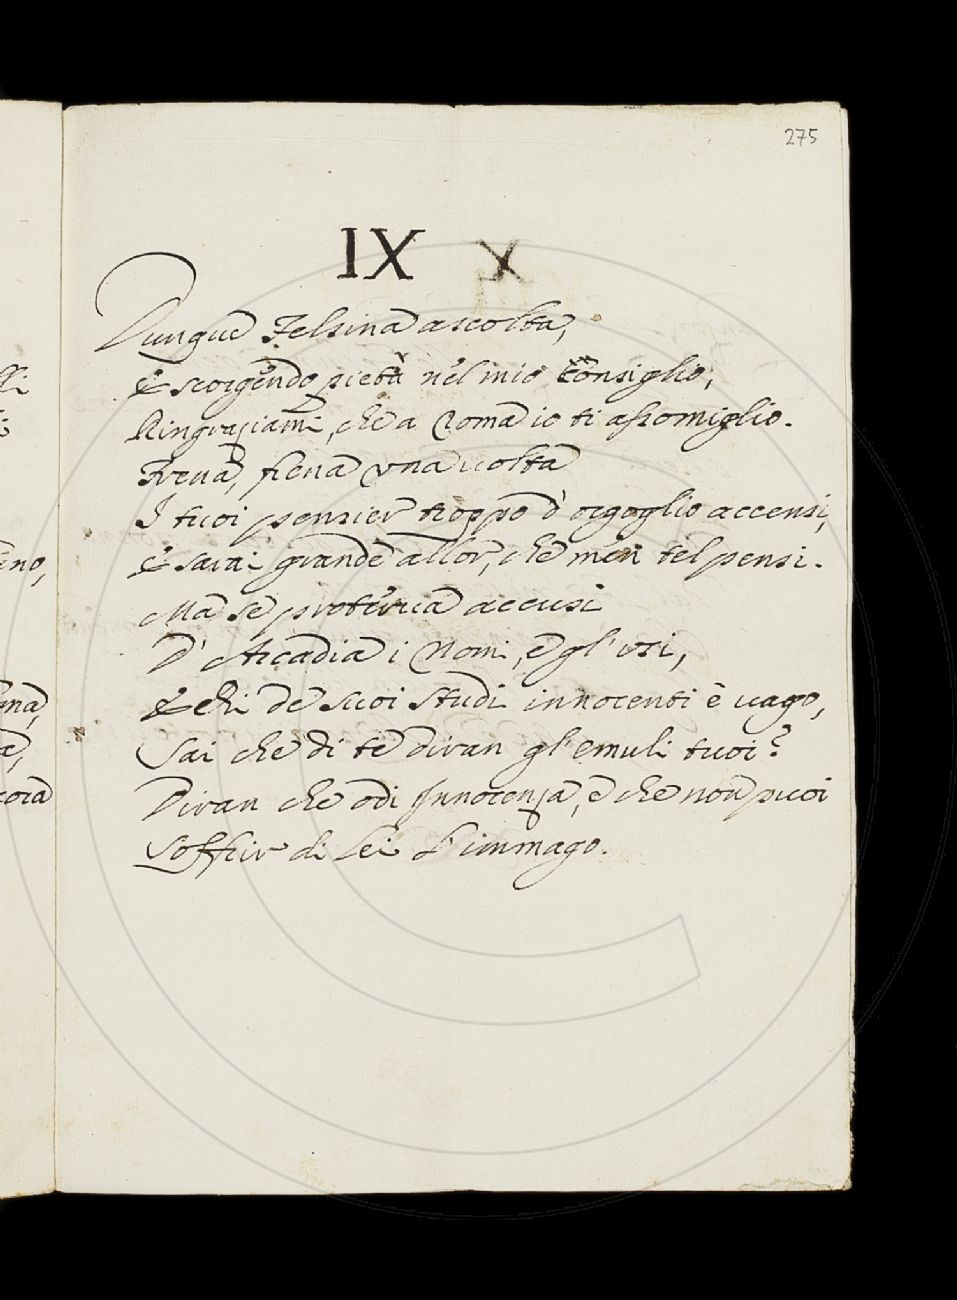 275
IX X
Dunque Felsina ascolta,
E scorgendo pietà nel mio Consiglio,
Ringraziami, che a Roma io ti assomiglio.
Frena, frena una uolta
I tuoi pensier troppo d'orgoglio accensi,
E sarai grande allor, che men tel pensi.
Ma se proterua accusi
D'Arcadia i Nomi, e gl'usi,
E chi de suoi Studi innocenti è uago,
Sai che di te diran gl'emuli tuoi?
Diran che odi Innocenza, e che non puoi
Soffrir di Lei L'immago.
eno,
gna,
a,
cora